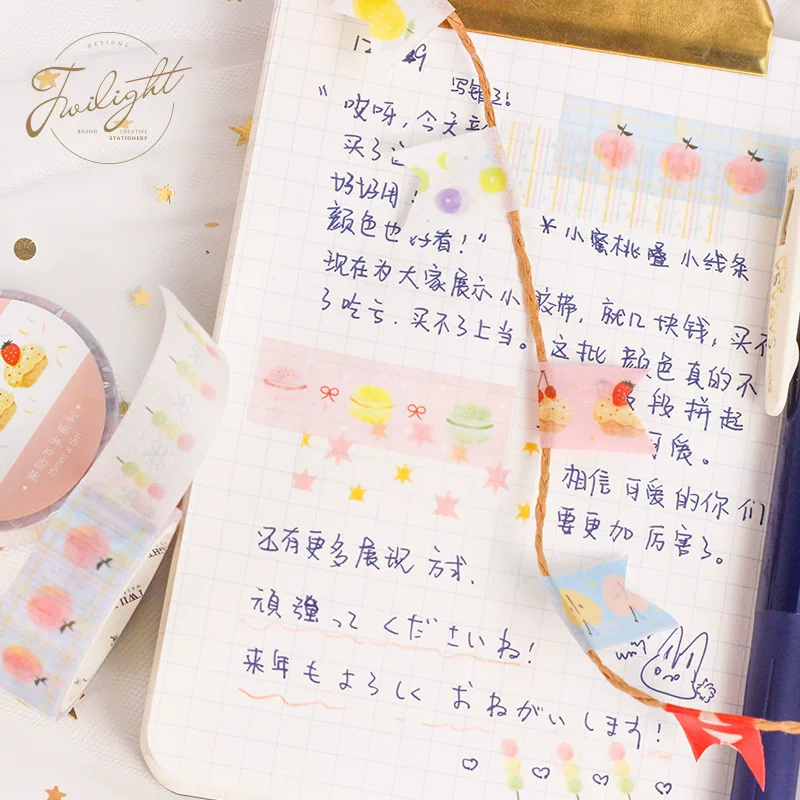 DESIGNS
Twilight
BRAND CREATIVE
STATIONERY
写错了!
"哎呀,今天
买了
好好用!
颜色也好看!"
*小蜜桃叠小线条
现在为大家展示小胶带,就几块钱,买不
了吃亏.买不了上当。这批颜色真的不
段拼起
可爱。
相信可爱的你们
要更加厉害了。
还有更多展现方式.
頑強ってくださいね!
来年もよろしくおねがいします!
15mm x 5m